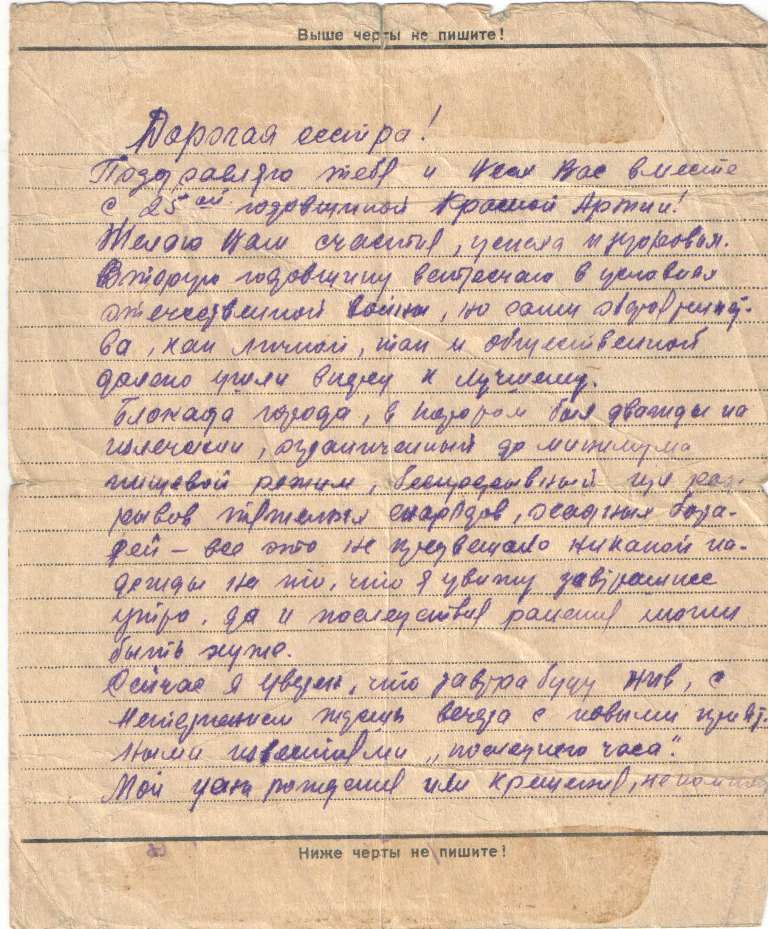 Выше черты не пишите!
Дорогая сестра!
Поздравляю тебя и всех Вас вместе
с 25ой годовщиной Красной Армии!
Желаю Вам счастья, успеха и здоровья.
Вторую годовщину встречаю в условиях
отечественной войны, но сами
ва, как личной, так и общественной
далеко ушли вперед к лучшему.
Блокада города, в котором был дважды на
излечении, ограниченный до минимума
пищевой режим, беспрерывный
рывов тяжелых снарядов, бата-
рей — все это не предвещало никакой на-
дежды на то, что я увижу завтрашнее
утро, да и последствия ранения могли
быть хуже.
Сейчас я уверен, что завтра буду жив, с
нетерпением ждешь вечера с новыми прият-
ными известиями „последнего часа".
Мой день рождения или крещения, не
Ниже черты не пишите!